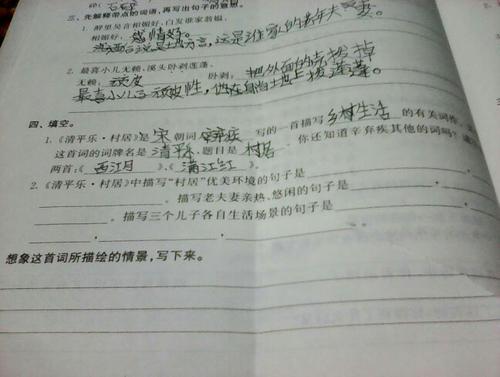 三、先解释带点的词语,再写出句子的意思。
1. 醉里吴音相媚好,白发谁家翁媪。
相媚好: 感情好。
是土地方言,这是谁家的老年夫妻。
2. 最喜小儿无赖,溪头卧剥莲蓬。
无赖: 顽皮 卧剥: 把外面的壳掰掉
最喜小儿子顽皮性,他在草地上拨莲蓬。
四、填空。
1.《清平乐·村居》是 宋 朝词 写的一首描写 乡村生活 的有关词作。
这首词的词牌名是 清平乐,题目是 村居。你还知道辛弃疾其他的词吗?
两首:《西江月》、《满江红》。
2.《清平乐·村居》中描写“村居”优美环境的句子是
。描写老夫妻亲热、悠闲的句子是
。描写三个儿子各自生活场景的句子是
想象这首词所描绘的情景,写下来。